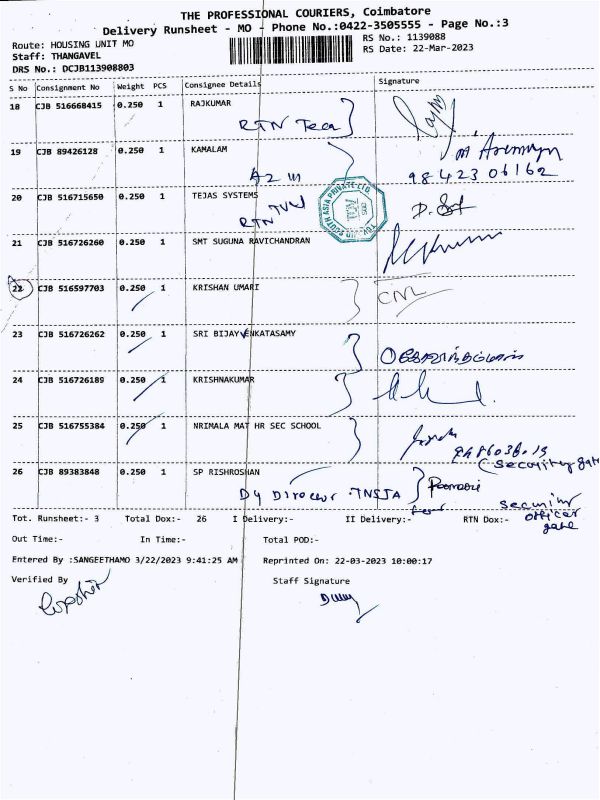 THE PROFESSIONAL COURIERS, Coimbatore
Delivery Runsheet - MO - Phone No.:0422-3505555 - Page No.:3
Route: HOUSING UNIT MO
RS No.: 1139088
Staff: THANGAVEL
RS Date: 22-Mar-2023
DRS No.: DCJB113908803
S No Consignment No Weight PCS Consignee Details Signature
18 CJB 516668415 0.250 1 RAJKUMAR
RTN
19 CJB 89426128 0.250 1 KAMALAM
98423 06162
20 CJB 516715650 0.250 1 TEJAS SYSTEMS
RTN
SOUTH ASIA PRIVATE LTD.
21 CJB 516726260 0.250 1 SMT SUGUNA RAVICHANDRAN
22 CJB 516597703 0.250 1 KRISHAN UMARI
23 CJB 516726262 0.250 1 SRI BIJAYVENKATASAMY
24 CJB 516726189 0.250 1 KRISHNAKUMAR
25 CJB 516755384 0.250 1 NRIMALA MAT HR SEC SCHOOL
(Security gate
26 CJB 89383848 0.250 1 SP RISHROSHAN
Dy Director
security
officer
gate
Tot. Runsheet:- 3 Total Dox:- 26 I Delivery:- II Delivery:- RTN Dox:-
Out Time:- In Time:- Total POD:-
Entered By :SANGEETHAMO 3/22/2023 9:41:25 AM Reprinted On: 22-03-2023 10:00:17
Verified By Staff Signature